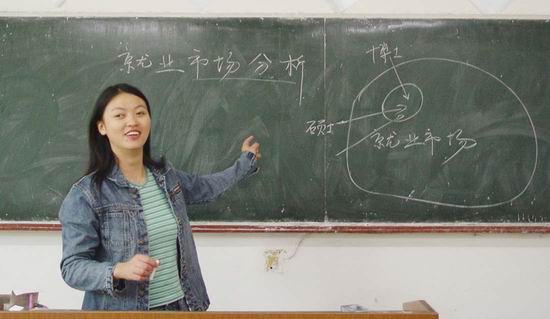 就业市场分析
博士
硕士
就业市场